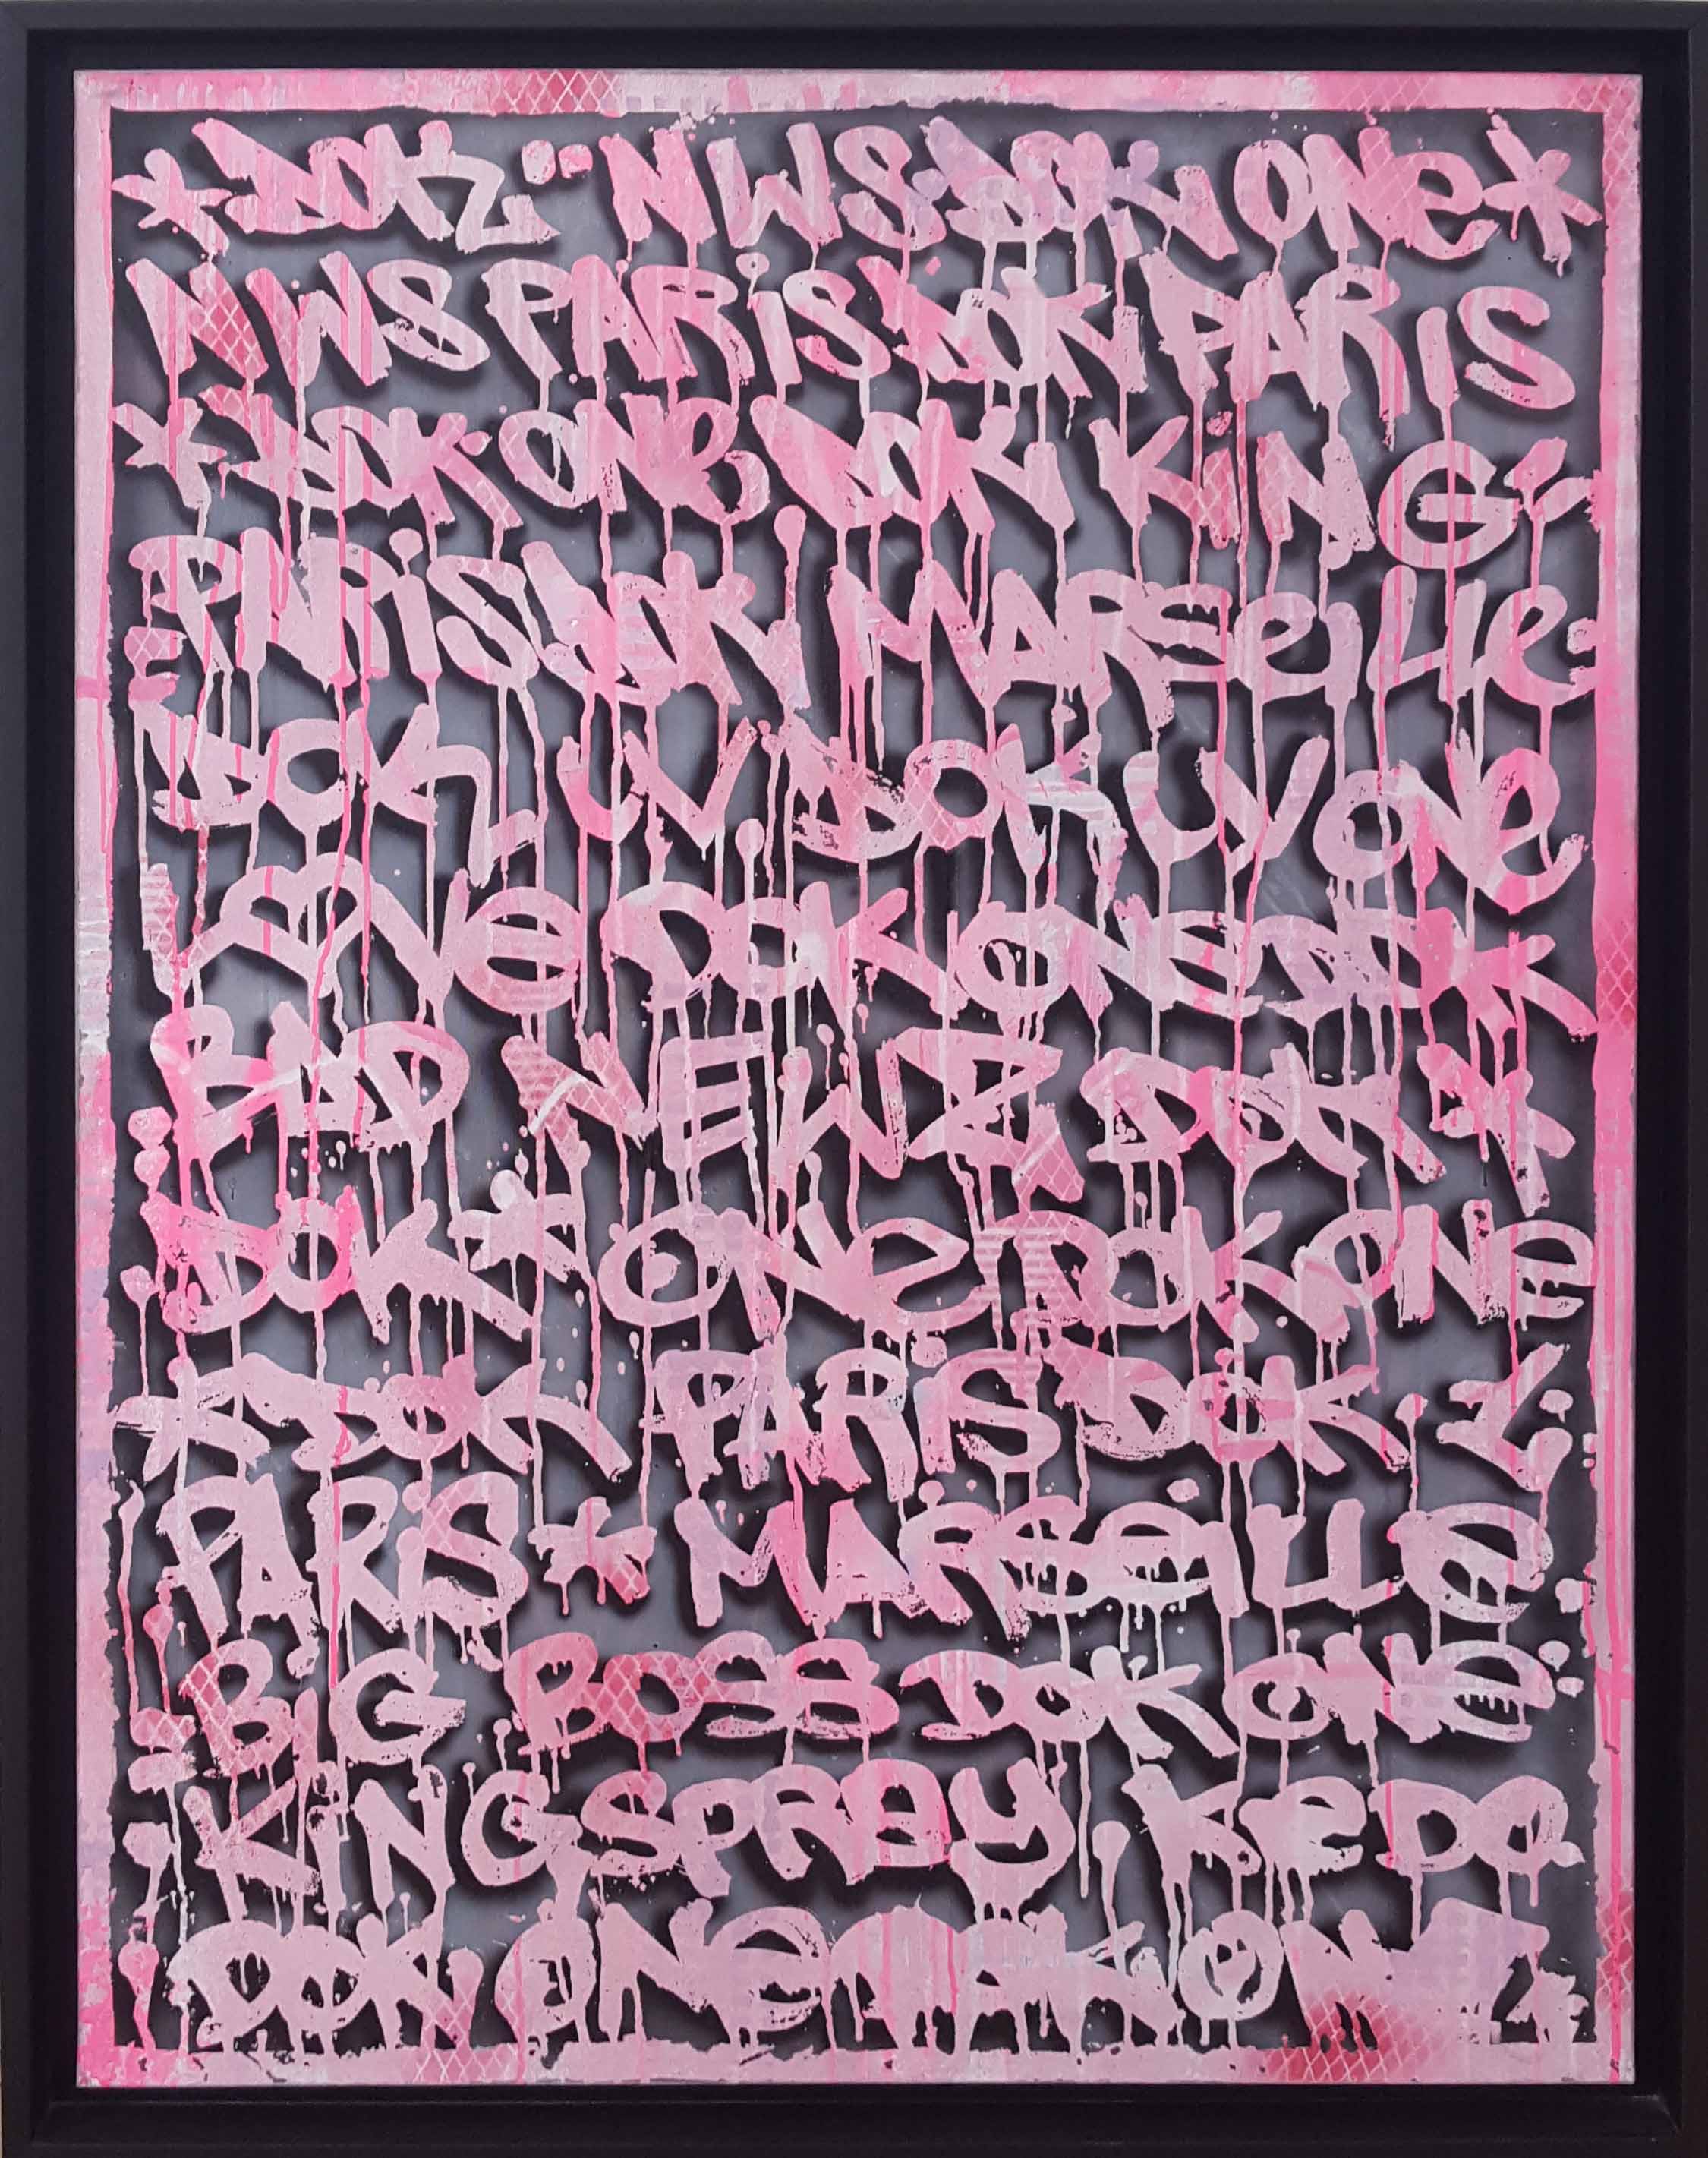 *DOK" NWS DOK ONE*
NWS PARIS DOK PARIS
*DOK ONE DOK KING
PARIS DOK MARSEILLE
DOK UV DOK UV ONE
VE DOK ONE DOK
BAD NEWZ DOK *
DOK * ONE DOK ONE
* DOK PARIS DOK. 1.
PARIS * MARSEILLE
BIG BOSS DOK ONE
KING SPRAY
DOK ONE